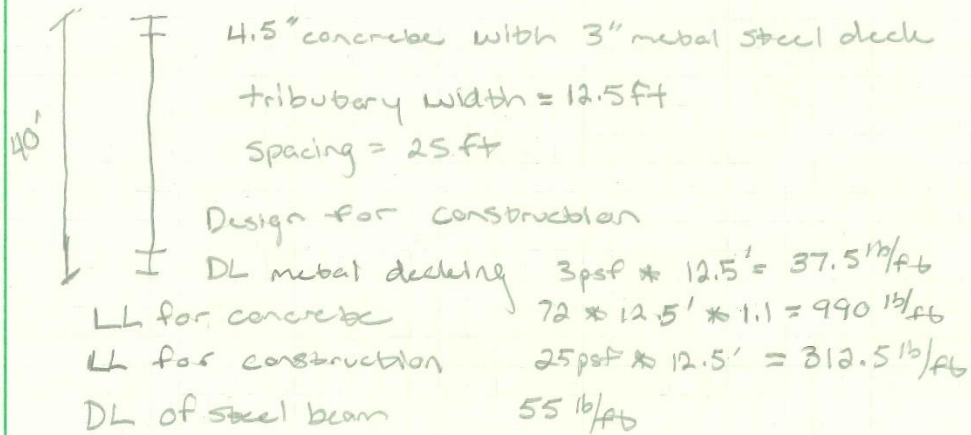 4.5" concrete with 3" metal steel deck
tributary width = 12.5ft
40'
spacing = 25 ft
Design for construction
DL metal decking 3psf * 12.5' = 37.5 lb/ft
LL for concrete 72 * 12.5' * 1.1 = 990 lb/ft
LL for construction 25psf * 12.5' = 312.5 lb/ft
DL of steel beam 55 lb/ft